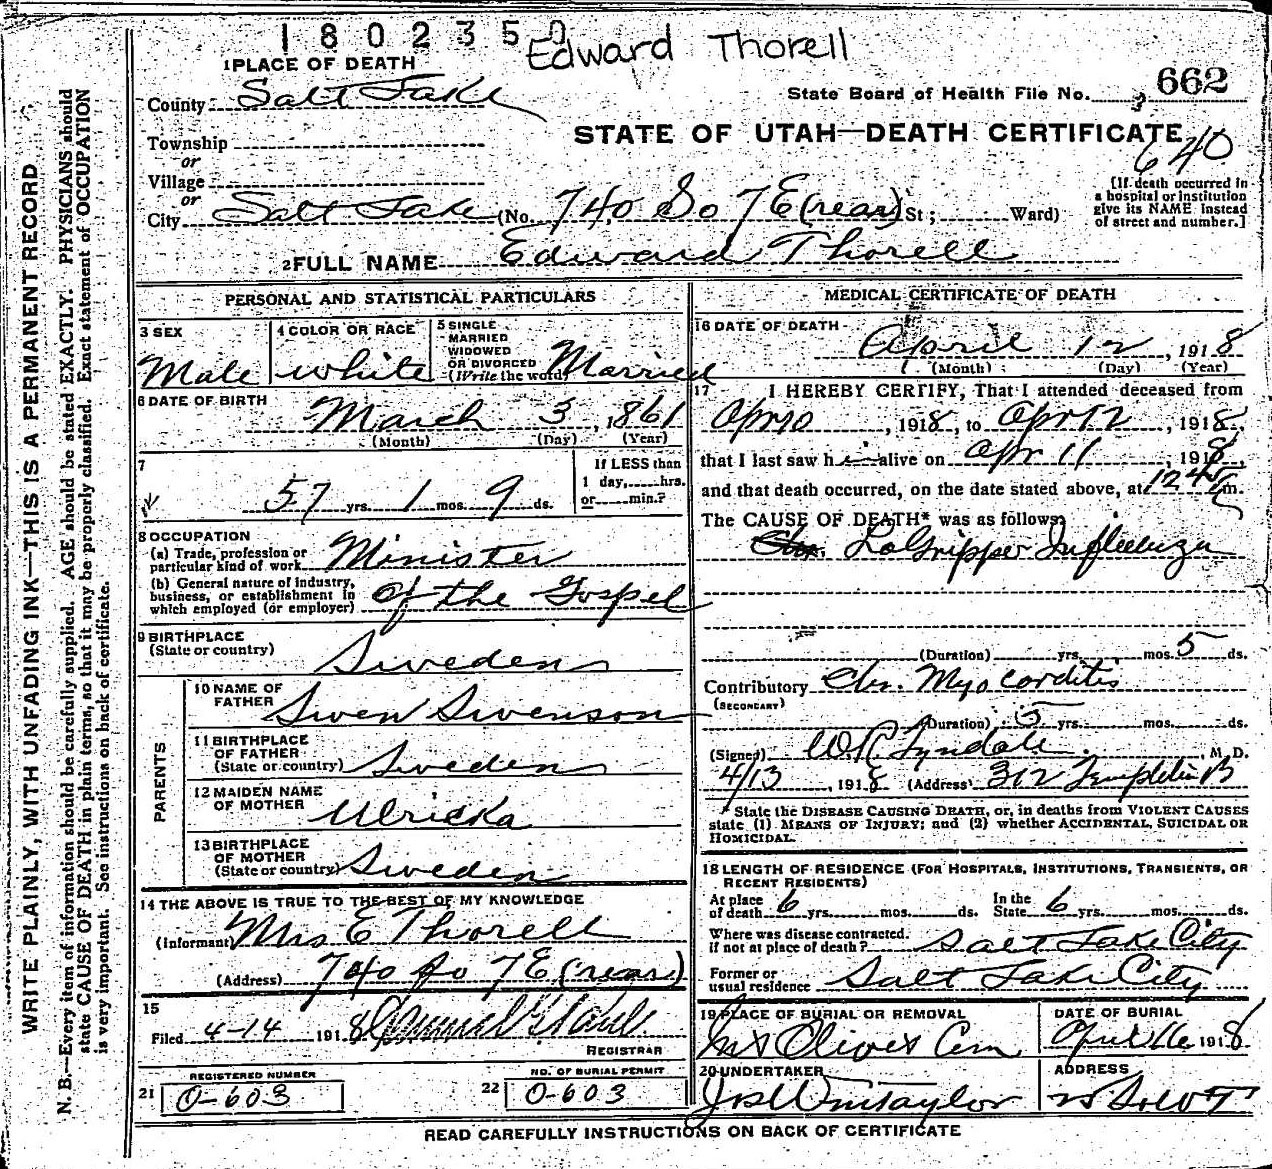 1802350 Edward Thorell
1 PLACE OF DEATH
County Salt Lake
State Board of Health File No. 662
STATE OF UTAH—DEATH CERTIFICATE
640
Township
or
Village
or
City Salt Lake (No. 740 So 7 E (rear) St; Ward)
[If death occurred in a hospital or institution give its NAME instead of street and number.]
2 FULL NAME Edward Thorell
PERSONAL AND STATISTICAL PARTICULARS
3 SEX Male
4 COLOR OR RACE White
5 SINGLE MARRIED WIDOWED OR DIVORCED (Write the word) Married
6 DATE OF BIRTH
March 3, 1861
(Month) (Day) (Year)
7
57 yrs. 1 mos. 9 ds.
If LESS than 1 day, hrs. or min.?
8 OCCUPATION
(a) Trade, profession or particular kind of work Minister
(b) General nature of industry, business, or establishment in which employed (or employer) of the Gospel
9 BIRTHPLACE
(State or country) Sweden
PARENTS
10 NAME OF FATHER Swen Swenson
11 BIRTHPLACE OF FATHER (State or country) Sweden
12 MAIDEN NAME OF MOTHER Ulricka
13 BIRTHPLACE OF MOTHER (State or country) Sweden
14 THE ABOVE IS TRUE TO THE BEST OF MY KNOWLEDGE
(Informant) Mrs E Thorell
(Address) 740 So 7 E (rear)
15
Filed 4-14 1918
REGISTRAR
21 REGISTERED NUMBER O-603
22 NO. OF BURIAL PERMIT O-603
MEDICAL CERTIFICATE OF DEATH
16 DATE OF DEATH
April 12, 1918
(Month) (Day) (Year)
17 I HEREBY CERTIFY, That I attended deceased from
Apr 10, 1918, to Apr 12, 1918,
that I last saw him alive on Apr 11, 1918,
and that death occurred, on the date stated above, at 1245 m.
The CAUSE OF DEATH* was as follows:
LaGrippe Influenza
(Duration) yrs. mos. 5 ds.
Contributory Chr. Myocarditis
(SECONDARY)
(Duration) 5 yrs. mos. ds.
(Signed) W.R. Tyndale, M. D.
4/13, 1918 (Address) 312 Templeton B
*State the DISEASE CAUSING DEATH, or, in deaths from VIOLENT CAUSES state (1) MEANS OF INJURY; and (2) whether ACCIDENTAL, SUICIDAL OR HOMICIDAL.
18 LENGTH OF RESIDENCE (FOR HOSPITALS, INSTITUTIONS, TRANSIENTS, OR RECENT RESIDENTS)
At place of death 6 yrs. mos. ds. In the State 6 yrs. mos. ds.
Where was disease contracted, if not at place of death? Salt Lake City
Former or usual residence Salt Lake City
19 PLACE OF BURIAL OR REMOVAL Mt Olivet Cem
DATE OF BURIAL April 16 1918
20 UNDERTAKER Jos Wm Taylor
ADDRESS
READ CAREFULLY INSTRUCTIONS ON BACK OF CERTIFICATE
WRITE PLAINLY, WITH UNFADING INK—THIS IS A PERMANENT RECORD
N. B.—Every item of information should be carefully supplied. AGE should be stated EXACTLY. PHYSICIANS should
state CAUSE OF DEATH in plain terms, so that it may be properly classified. Exact statement of OCCUPATION
is very important. See instructions on back of certificate.